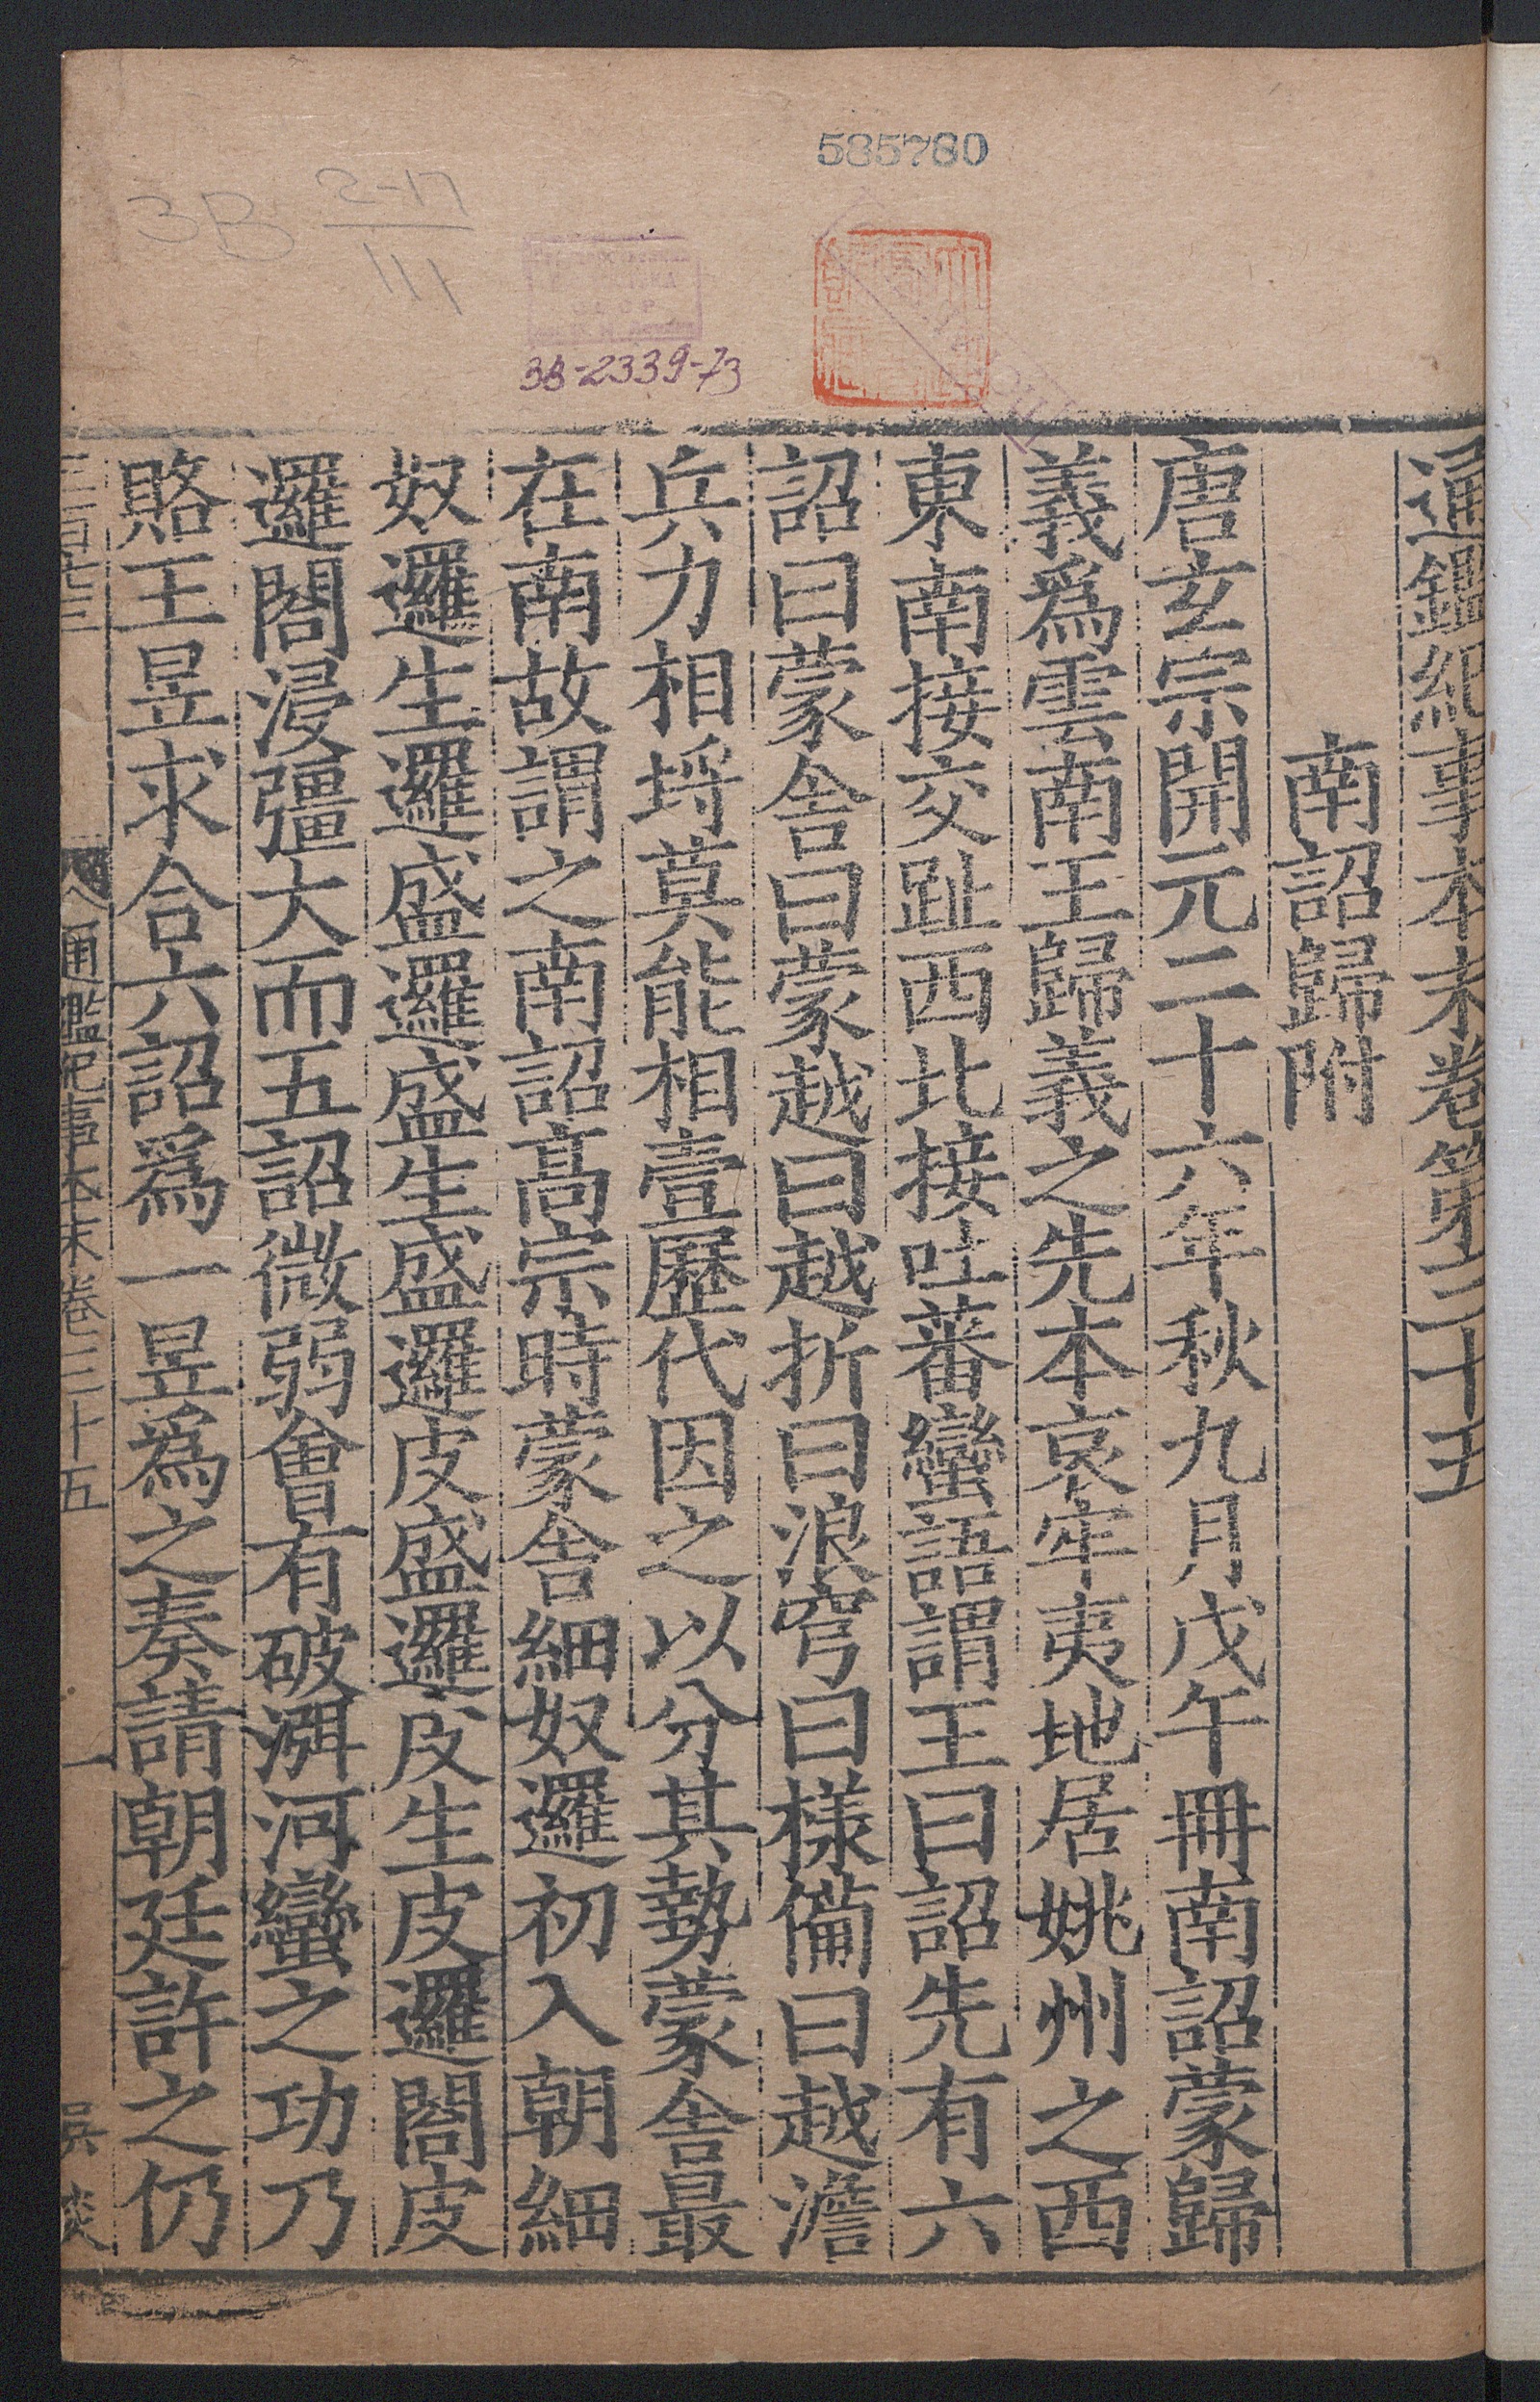 585780
3B 2-17
III
3B-2339-73
通鑑紀事本末卷第三十五
南詔歸附
唐玄宗開元二十六年秋九月戊午冊南詔蒙歸
義爲雲南王歸義之先本哀牢夷地居姚州之西
東南接交趾西北接吐蕃蠻語謂王曰詔先有六
詔曰蒙舎曰蒙越曰越折曰浪穹曰樣備曰越澹
兵力相埒莫能相壹歷代因之以分其勢蒙舎最
在南故謂之南詔高宗時蒙舎細奴邏初入朝細
奴邏生邏盛邏盛生盛邏皮盛邏皮生皮邏閤皮
邏閤浸彊大而五詔微弱會有破洱河蠻之功乃
賂王昱求合六詔爲一昱爲之奏請朝廷許之仍
通鑑紀事本末卷三十五
一